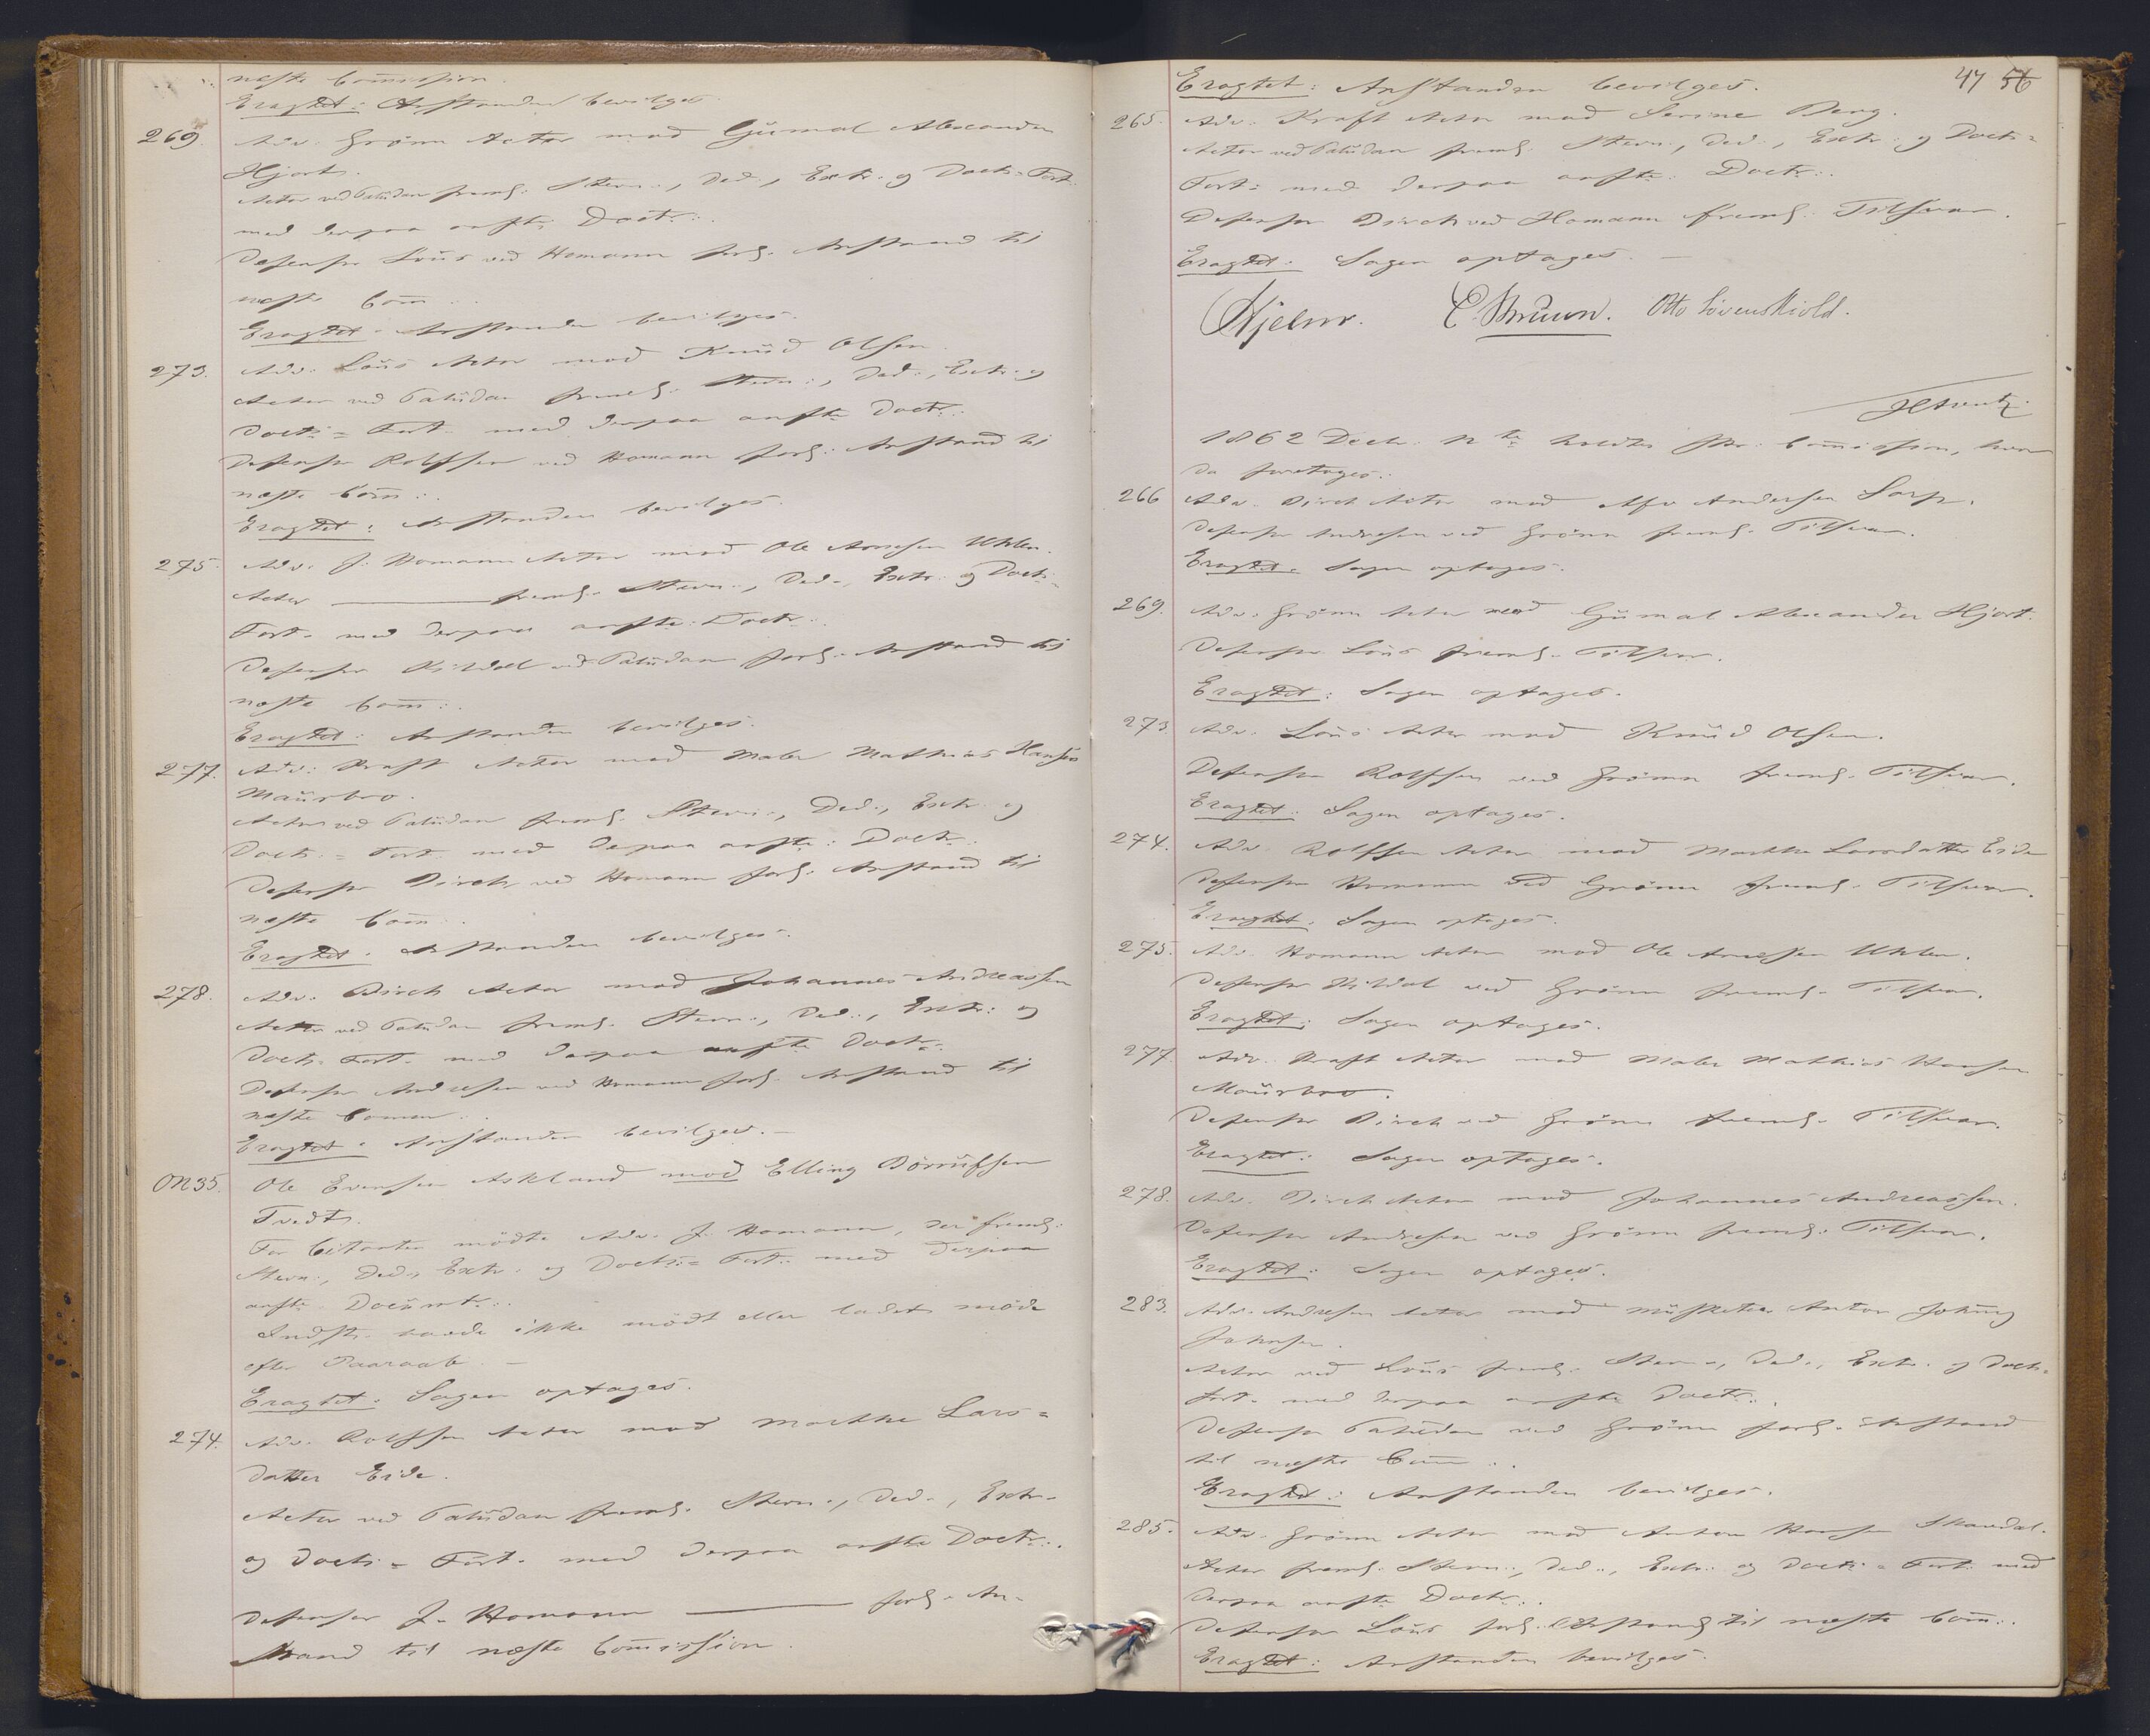 næste Commission.
Eragtet: Anstanden bevilges.
269. Adv. Grönn Actor mod Gümal Alexander
Hjort.
Actor ved Palüdan freml. Stevn:, Ded:, Extr. og Doctr:= Fort:
med derpaa anfte Doctr:.
Defensor Loüs ved Homann forl. Anstand til
næste Com:.
Eragtet: Anstanden bevilges.
273. Adv. Loüs Actor mod Knüd Olsen.
Actor ved Palüdan freml. Stevn:, Ded:, Extr: og
Doctr:= Fort. med derpaa anfte Doctr:.
Defensor Rolfsen ved Homann forl. Anstand til
næste Com:.
Eragtet: Anstanden bevilges.
275. Adv. J. Homann Actor mod Ole Arnesen Uhlen.
Actor ——— freml. Stevn:, Ded:, Extr: og Doctr:=
Fort. med derpaa anfte: Doctr:.
Defensor Kildal ved Palüdan forl. Anstand til
næste Com:.
Eragtet: Anstanden bevilges.
277. Adv: Kraft Actor mod Maler Mathias Hansen
Maürbro.
Actor ved Palüdan freml. Stevn:, Ded:, Extr. og
Doctr:= Fort. med derpaa anfte: Doctr:.
Defensor Birch ved Homann forl. Anstand til
næste Com:.
Eragtet: Anstanden bevilges.
278. Adv. Birch Actor mod Johannes Andreassen
Actor ved Palüdan freml. Stevn:, Ded:, Extr: og
Doctr. Fort. med derpaa anfte Doctr:.
Defensor Andresen ved Homann forl. Anstand til
næste Comm:.
Eragtet: Anstanden bevilges.—
ON35. Ole Evensen Askland mod Elling Börrüfsen
Tvedt.
For Citanten mödte Adv. J. Homann, der freml:
Stevn:, Ded:, Extr. og Doctr:= Fort: med derpaa
anfte Docümtr:.
Indst. havde ikke mödt eller ladet möde
efter Paaraab.—
Eragtet: Sagen optages.
274. Adv. Rolfsen Actor mod Marthe Lars=
datter Eide.
Actor ved Palüdan freml. Stevn:, Ded:, Extr.
og Doctr:= Fort. med derpaa anfte Doctr:.
Defensor J. Homann ——— forl. An-
stand til næste Commission.
47 56
Eragtet: Anstanden bevilges.
265. Adv. Kraft Actor mod Serine Berg.
Actor ved Palüdan freml. Stevn:, Ded:, Extr: og Doctr:=
Fort: med derpaa anfte: Doctr:.
Defensor Birch ved Homann freml. Tilsvar.
Eragtet: Sagen optages.—
Hjelm. C. Bruun. Otto Lövenskiold.
1862 Decb. 12te holdtes Commission, hvor
da foretoges:
266 Adv. Birch Actor mod Andersen
Defensor Andresen ved Grönn freml. Tilsvar.
Eragtet: Sagen optages.
269. Adv. Grönn Actor mod Gümal Alexander Hjort.
Defensor Loüs freml. Tilsvar.
Eragtet: Sagen optages.
273 Adv. Loüs Actor mod Knüd Olsen.
Defensor Rolfsen ved Grönn freml. Tilsvar.
Eragtet: Sagen optages.
274. Adv. Rolfsen Actor mod Marthe Larsdatter Eide
Defensor Homann ved Grönn freml. Tilsvar.
Eragtet: Sagen optages.
275. Adv. Homann Actor mod Ole Arnesen Uhlen.
Defensor Kildal ved Grönn freml. Tilsvar.
Eragtet: Sagen optages.
277 Adv. Kraft Actor mod Maler Mathias Hansen
Maürbro.
Defensor Birch ved Grönn freml. Tilsvar.
Eragtet: Sagen optages.
278. Adv. Birch Actor mod Johannes Andreassen.
Defensor Andresen ved Grönn freml. Tilsvar.
Eragtet: Sagen optages.
283. Adv. Andresen Actor mod Müsketeer Anton
Johnsen.
Actor ved Loüs freml. Stevn:, Ded:, Extr. og Doctr:=
Fort. med derpaa anfte Doctr:.
Defensor Palüdan ved Grönn forl. Anstand
til næste Com:.
Eragtet: Anstanden bevilges.
285. Adv. Grönn Actor mod Anton Hansen Skavdal.
Actor freml. Stevn:, Ded:, Extr: og Doctr:= Fort. med
derpaa anfte Doctr:.
Defensor Loüs forl. Anstand til næste Com:.
Eragtet: Anstanden bevilges.